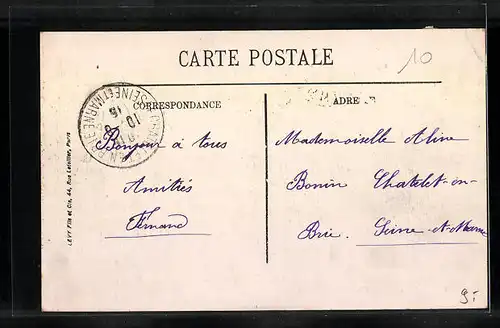 10
CARTE POSTALE
CORRESPONDANCE
ADRESSE
SEINE ET MARNE
10
15
Bonjour à tous
Amitiés
Fernand
Mademoiselle Aline
Bonin Chatelet-en-
Brie. Seine-et-Marne
LÉVY Fils et Cie, 44, Rue Letellier, Paris
9.-